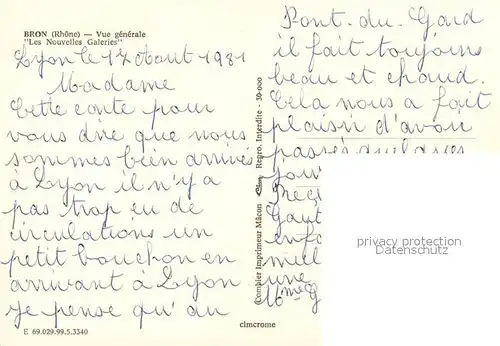 BRON (Rhône) — Vue générale
"Les Nouvelles Galeries"
Lyon le 17 Aout 1981
Madame
Cette carte pour
vous dire que nous
sommes bien arrivés
à Lyon il n'y a
pas trop eu de
circulations un
petit bouchon en
arrivant à Lyon
je pense qu'au
E 69.029.99.5.3340
cimcrome
Combier Imprimeur Mâcon
Repro. Interdite - 30-000
Pont-du-Gard
il fait toujours
beau et chaud.
Cela nous a fait
plaisir d'avoir
passés quelques
jour
une
privacy protection
Datenschutz